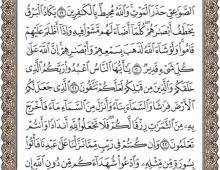 ٱلصَّوَٰعِقِ حَذَرَ ٱلْمَوْتِ وَٱللَّهُ مُحِيطٌۢ بِٱلْكَٰفِرِينَ ۝١٩ يَكَادُ ٱلْبَرْقُ
يَخْطَفُ أَبْصَٰرَهُمْ كُلَّمَآ أَضَآءَ لَهُم مَّشَوْا۟ فِيهِ وَإِذَآ أَظْلَمَ عَلَيْهِمْ
قَامُوا۟ وَلَوْ شَآءَ ٱللَّهُ لَذَهَبَ بِسَمْعِهِمْ وَأَبْصَٰرِهِمْ إِنَّ ٱللَّهَ عَلَىٰ
كُلِّ شَىْءٍ قَدِيرٌ ۝٢٠ يَٰٓأَيُّهَا ٱلنَّاسُ ٱعْبُدُوا۟ رَبَّكُمُ ٱلَّذِى
خَلَقَكُمْ وَٱلَّذِينَ مِن قَبْلِكُمْ لَعَلَّكُمْ تَتَّقُونَ ۝٢١ ٱلَّذِى جَعَلَ لَكُمُ
ٱلْأَرْضَ فِرَٰشًا وَٱلسَّمَآءَ بِنَآءً وَأَنزَلَ مِنَ ٱلسَّمَآءِ مَآءً فَأَخْرَجَ
بِهِۦ مِنَ ٱلثَّمَرَٰتِ رِزْقًا لَّكُمْ فَلَا تَجْعَلُوا۟ لِلَّهِ أَندَادًا وَأَنتُمْ
تَعْلَمُونَ ۝٢٢ وَإِن كُنتُمْ فِى رَيْبٍ مِّمَّا نَزَّلْنَا عَلَىٰ عَبْدِنَا فَأْتُوا۟
بِسُورَةٍ مِّن مِّثْلِهِۦ وَٱدْعُوا۟ شُهَدَآءَكُم مِّن دُونِ ٱللَّهِ إِن